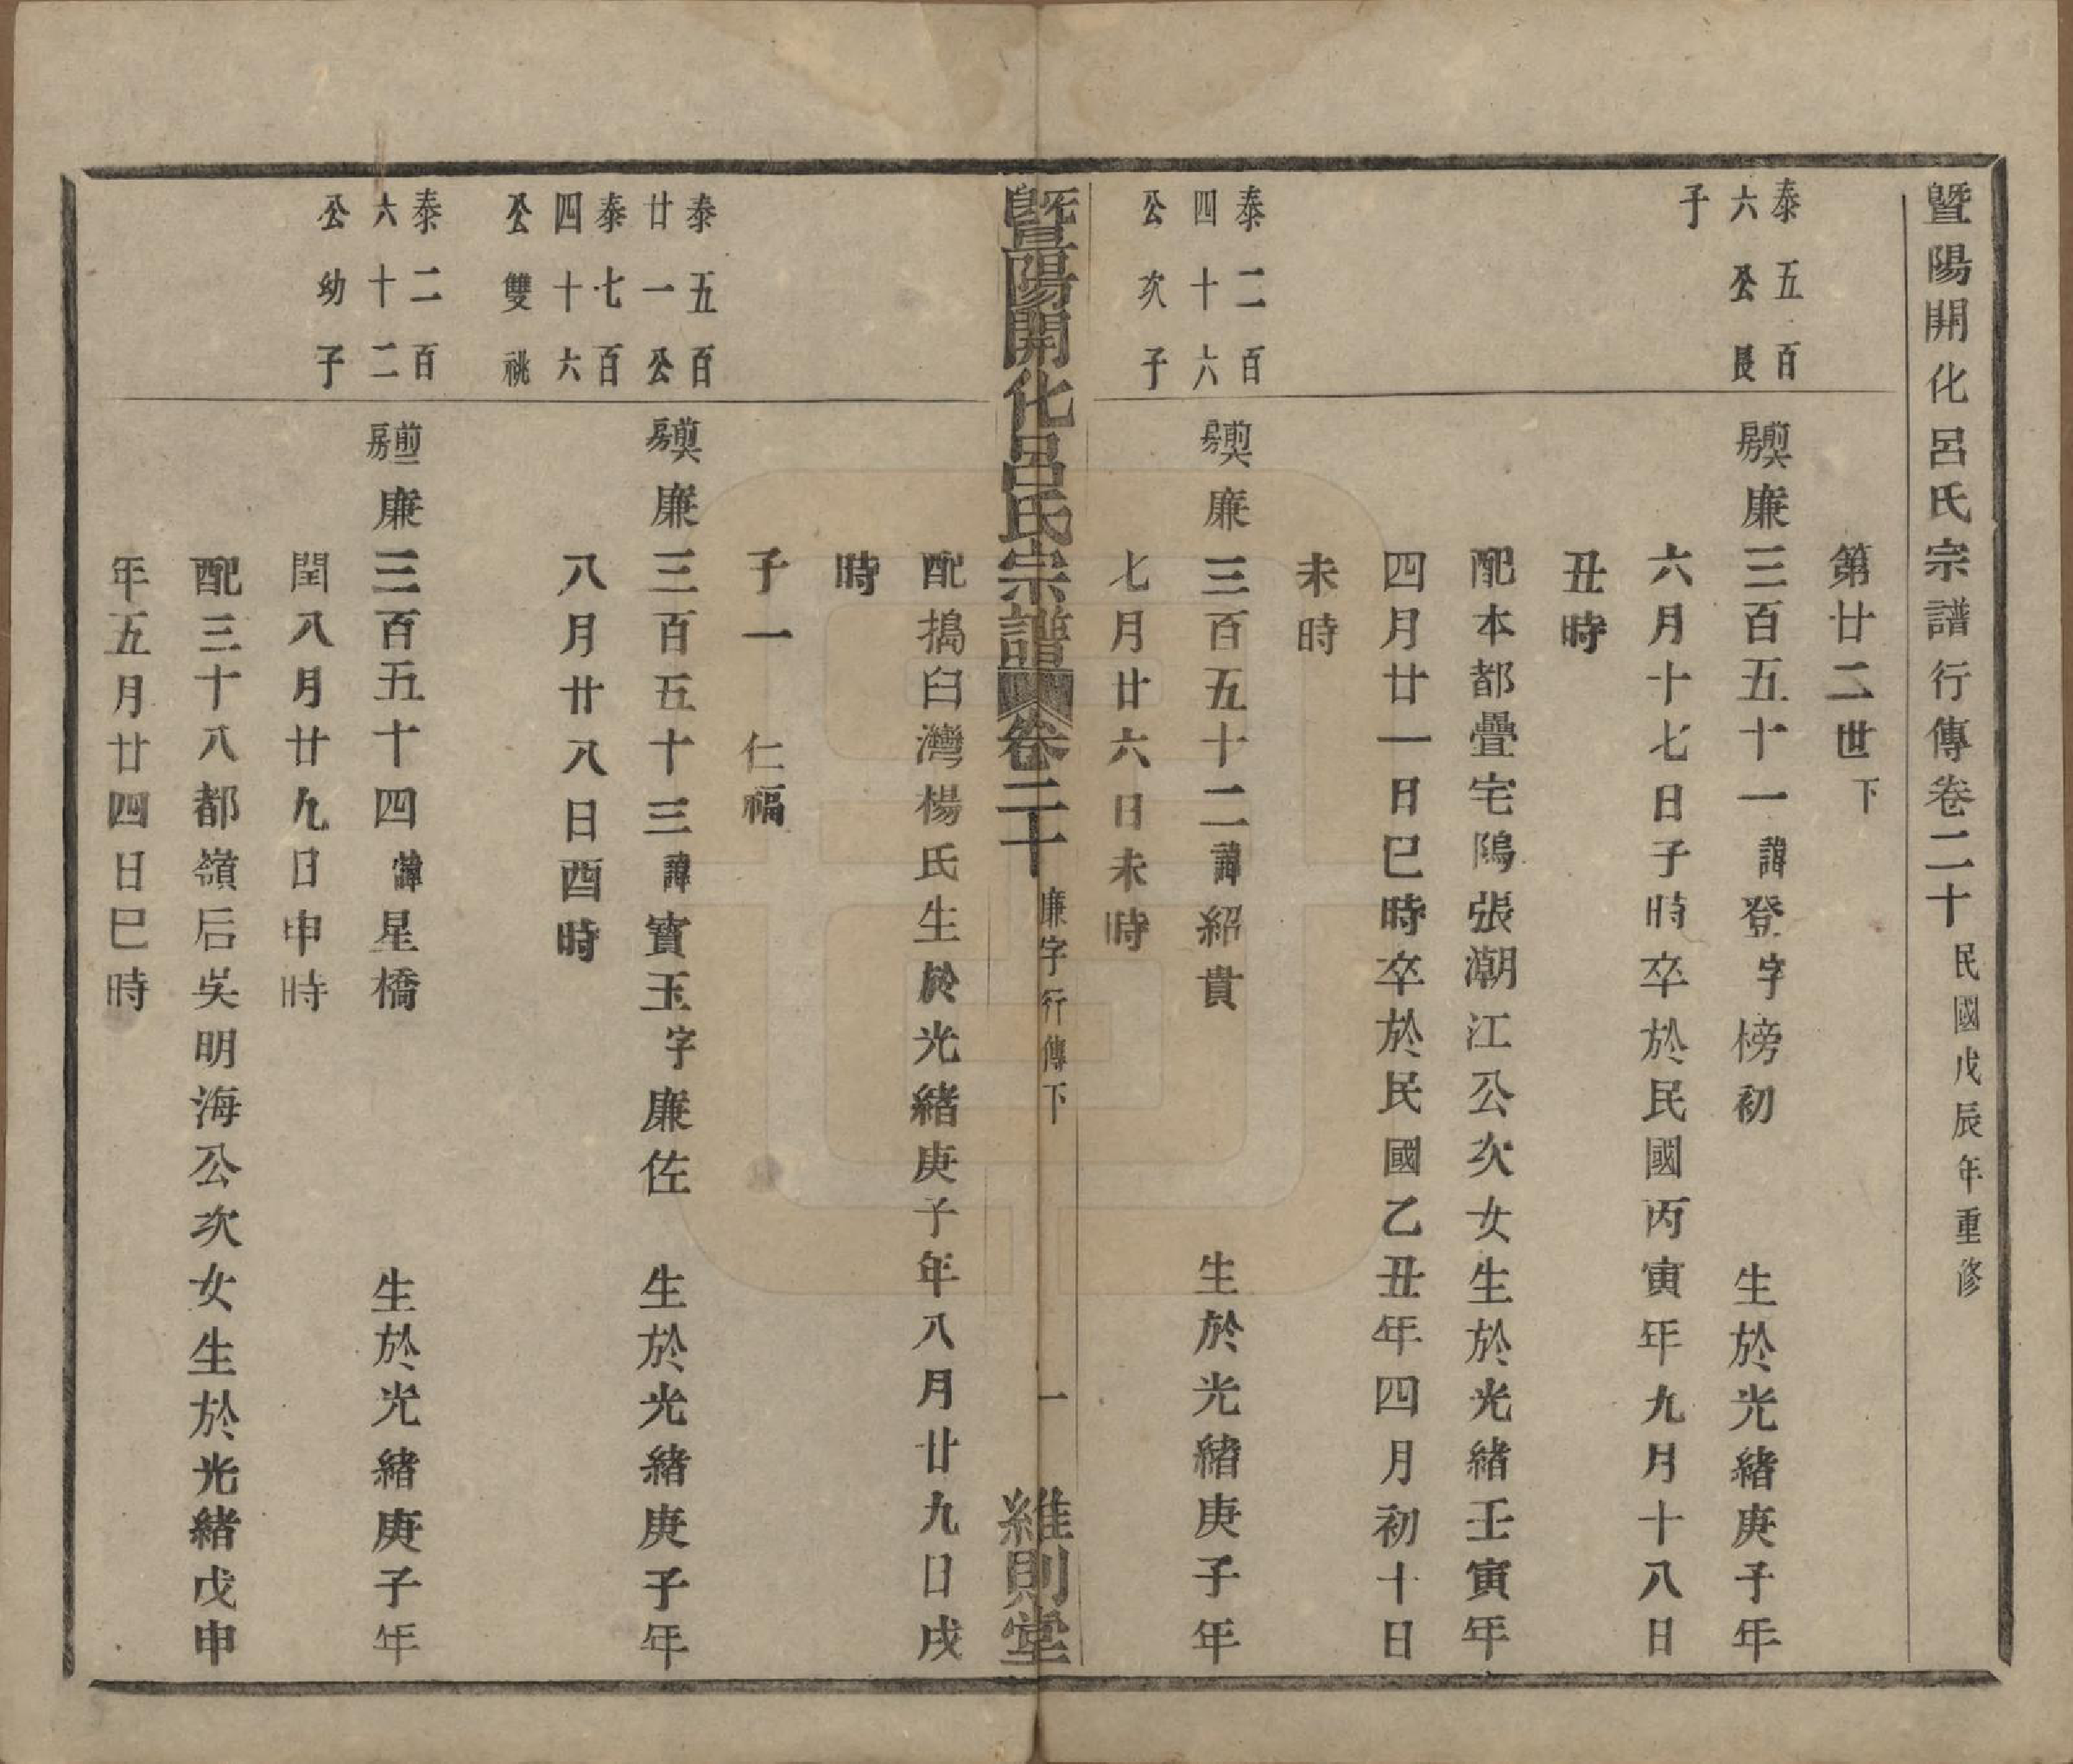 暨陽開化呂氏宗譜行傳卷二十 民國戊辰年重修
第廿二世下
泰五百
六公長
子
房 廉三百五十一諱登字榜初 生於光緒庚子年
六月十七日子時卒於民國丙寅年九月十八日
丑時
配本都疊宅隖張潮江公次女生於光緒壬寅年
四月廿一日巳時卒於民國乙丑年四月初十日
未時
泰二百
四十六
公次子
房 廉三百五十二諱紹貴 生於光緒庚子年
七月廿六日未時
暨陽開化呂氏宗譜 卷二十 廉字行傳下 一 維則堂
配搗臼灣楊氏生於光緒庚子年八月廿九日戌
時
子一 仁福
泰五百
廿一公
泰七百
四十六
公雙祧
房 廉三百五十三諱寶玉字廉佐 生於光緒庚子年
八月廿八日酉時
泰二百
六十二
公幼子
房 廉三百五十四諱星橋 生於光緒庚子年
閏八月廿九日申時
配三十八都嶺后吳明海公次女生於光緒戊申
年五月廿四日巳時